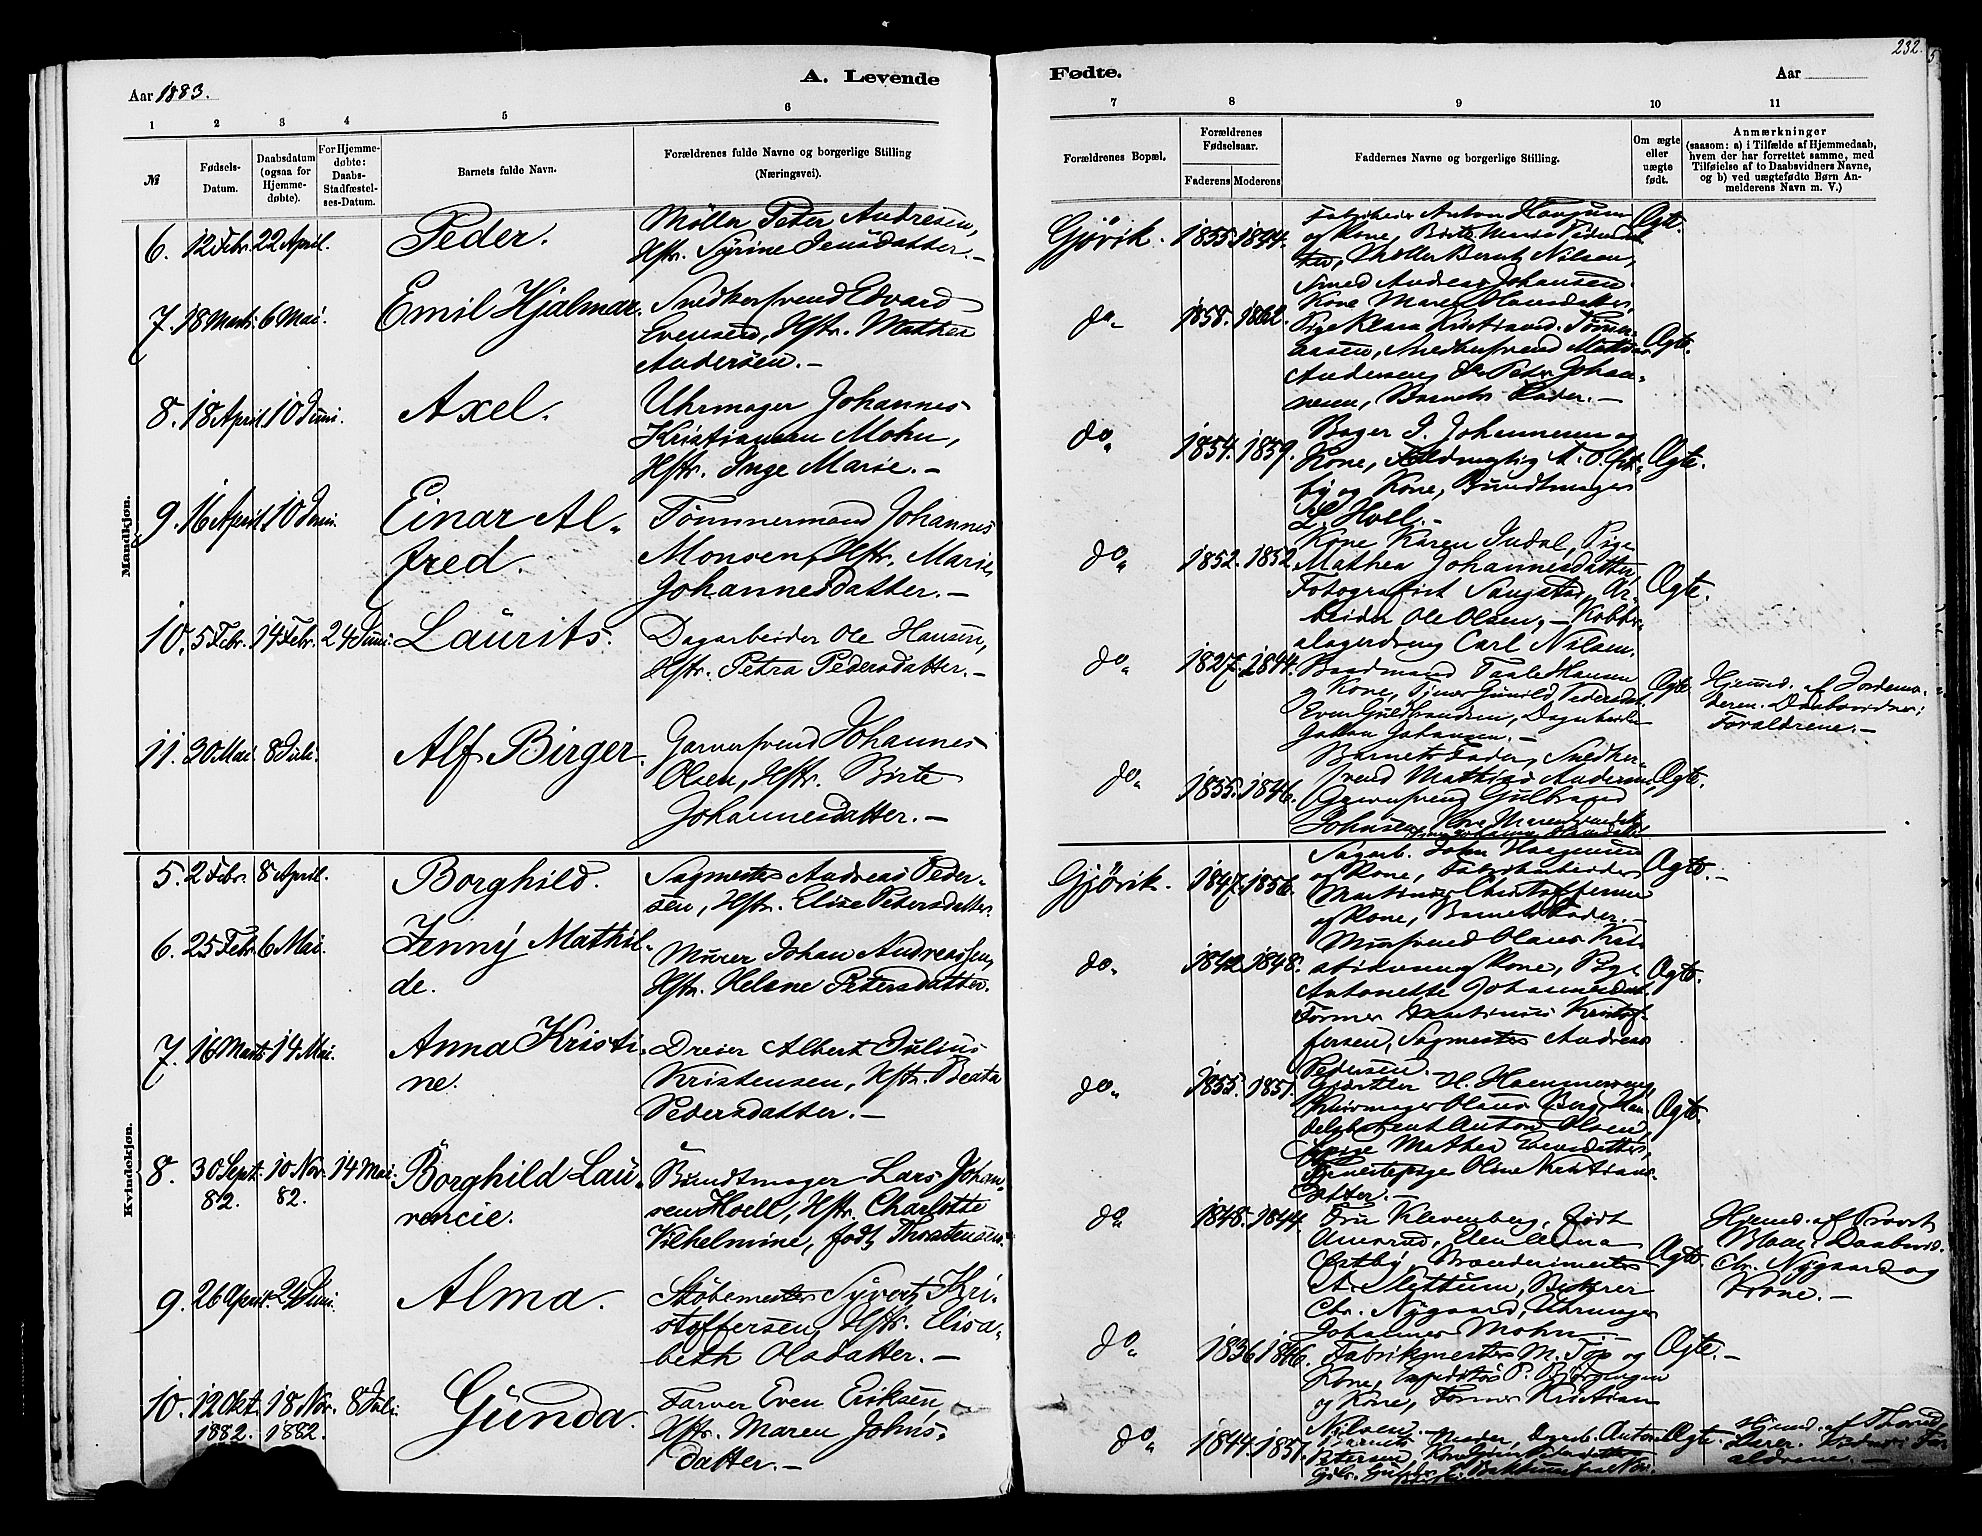 232.
A. Levende
Fødte.
Aar 1883.
Aar
1
2
3
4
5
6
7
8
9
10
11
№
Fødsels-
Datum.
Daabsdatum
(ogsaa for
Hjemme-
døbte).
For Hjemme-
døbte:
Daabs-
Stadfæstel-
ses-Datum.
Barnets fulde Navn.
Forældrenes fulde Navne og borgerlige Stilling
(Næringsvei).
Forældrenes Bopæl.
Forældrenes
Fødselsaar.
Faderens Moderens
Faddernes Navne og borgerlige Stilling.
Om ægte
eller
uægte
født.
Anmærkninger
(saasom: a) i Tilfælde af Hjemmedaab,
hvem der har forrettet samme, med
Tilføielse af to Daabsvidners Navne,
og b) ved uægtefødte Børn An-
melderens Navn m. V.)
Mandkjøn.
6. 12 Febr. 22 April. Peder.
Møller Peter Andresen,
Hstr. Syrine Jensdatter.-
Gjøvik. 1855. 1844.
og Kone, Birte Marie
Møller Bernt Nilsen,
Smed Andreas Johansen
Ægte.
7. 18 Marts 6 Mai. Emil Hjalmar.
Snedkersvend Edvard
Evensen, Hstr. Mathea
Andersen.-
do. 1858. 1862.
Kone Maren Hansdatter,
Pige Klara Kristiansd.
Snedkersvend Mathias
Andersen, do Peder Johan-
nesen, Barnets Fader.-
Ægte.
8. 18 April 10 Juni. Axel.
Uhrmager Johannes
Kristiansen Mohn,
Hstr. Inge Marie.-
do. 1854. 1859.
Bager J. Johannesen og
Kone,
og Kone, Bundtmager
L. Hoell.-
Ægte.
9. 16 April 10 Juni. Einar Al-
fred.
Tømmermand Johannes
Monsen, Hstr. Marie
Johannesdatter.-
do. 1852. 1852.
Kone Karen Indal, Pige
Mathea Johannesdatter,
Fotografist Sangstad, Ar-
beider Ole Olsen,
Carl Nilsen.
Ægte.
10. 5 Febr. 14 Febr. 24 Juni. Laurits.
Dagarbeider Ole Hansen,
Hstr. Petra Pedersdatter.-
do. 1827. 1844.
Baadmand Hansen
og Kone, Gunild Pedersdat.
Even Guldbrandsen, Dagarbeider
Johansen.-
Ægte.
Hjemmed. af Jordemo-
deren. Daabsvidner:
Forældrene.-
11. 30 Mai 8 Juli. Alf Birger.
Garversvend Johannes
Olsen, Hstr. Birte
Johannesdatter.-
do. 1855. 1846.
Barnets Fader, Snedker-
svend Mathias Andersen,
Garversvend Gulbrand
Johnsen, Kone Maren
Ægte.
Kvindekjøn.
5. 2 Febr. 8 April. Borghild.
Sagmester Andreas Peder-
sen, Hstr. Elise Petersdatter.
Gjøvik. 1847. 1856.
Sagarb. John Haagensen
og Kone, Fabrikarbeider
Martinus Christoffersen
og Kone, Barnets Fader.-
Ægte.-
6. 25 Febr. 6 Mai. Jenny Mathil-
de.
Murer Johan Andreassen,
Hstr. Helene Petersdatter.
do. 1842. 1848.
Mursvend Olaves Krist-
og Kone, Pige
Antonette Johannesdat.
Former Martinus Kristof-
fersen, Sagmester Andreas
Pedersen.-
Ægte.
7. 16 Marts 14 Mai. Anna Kristi-
ne.
Dreier Albert Julius
Kristensen, Hstr. Beata
Pedersdatter.-
do. 1855. 1851.
Gjørtler H. Hammereng,
Olaus Berg, Han-
delsbetjent Anton Olsen,
Pige Mathea
Tjenestepige Oline Kristians-
datter.-
Ægte.
8. 30 Sept. 82. 10 Nov. 82. 14 Mai. Borghild Lau-
rencie.
Bundtmager Lars Johan-
sen Hoell, Hstr. Charlotte
Vilhelmine, født Thorstensen.
do. 1848. 1844.
Fru Klevenberg, født
Amerud,
Østby, Brænderimester
A. Slettum, Bøkker
Chr. Nygaard, Uhrmager
Johannes Mohn.-
Ægte.
Hjemmed. af Provst
Daabsvid.
Chr. Nygaard og
Kone.-
9. 26 April 24 Juni. Alma.
Støbemester Syvert Kri-
stoffersen, Hstr. Elisa-
beth Olsdatter.-
do. 1836 1846.
Fabrikmester M. Top og
Kone, Expeditør P. Bjørge
og Kone, Former Kristian
Nilsen.-
Ægte.-
10. 12 Okt. 1882. 18 Nov. 1882. 8 Juli. Gunda.
Farver Even Eriksen,
Hstr. Maren Johns-
datter.-
do. 1844. 1851.
Barnets Moder, Dagarb. Anton
Petersen,
Ægte.
Hjemmed. af
Vidner: For-
ældrene.-